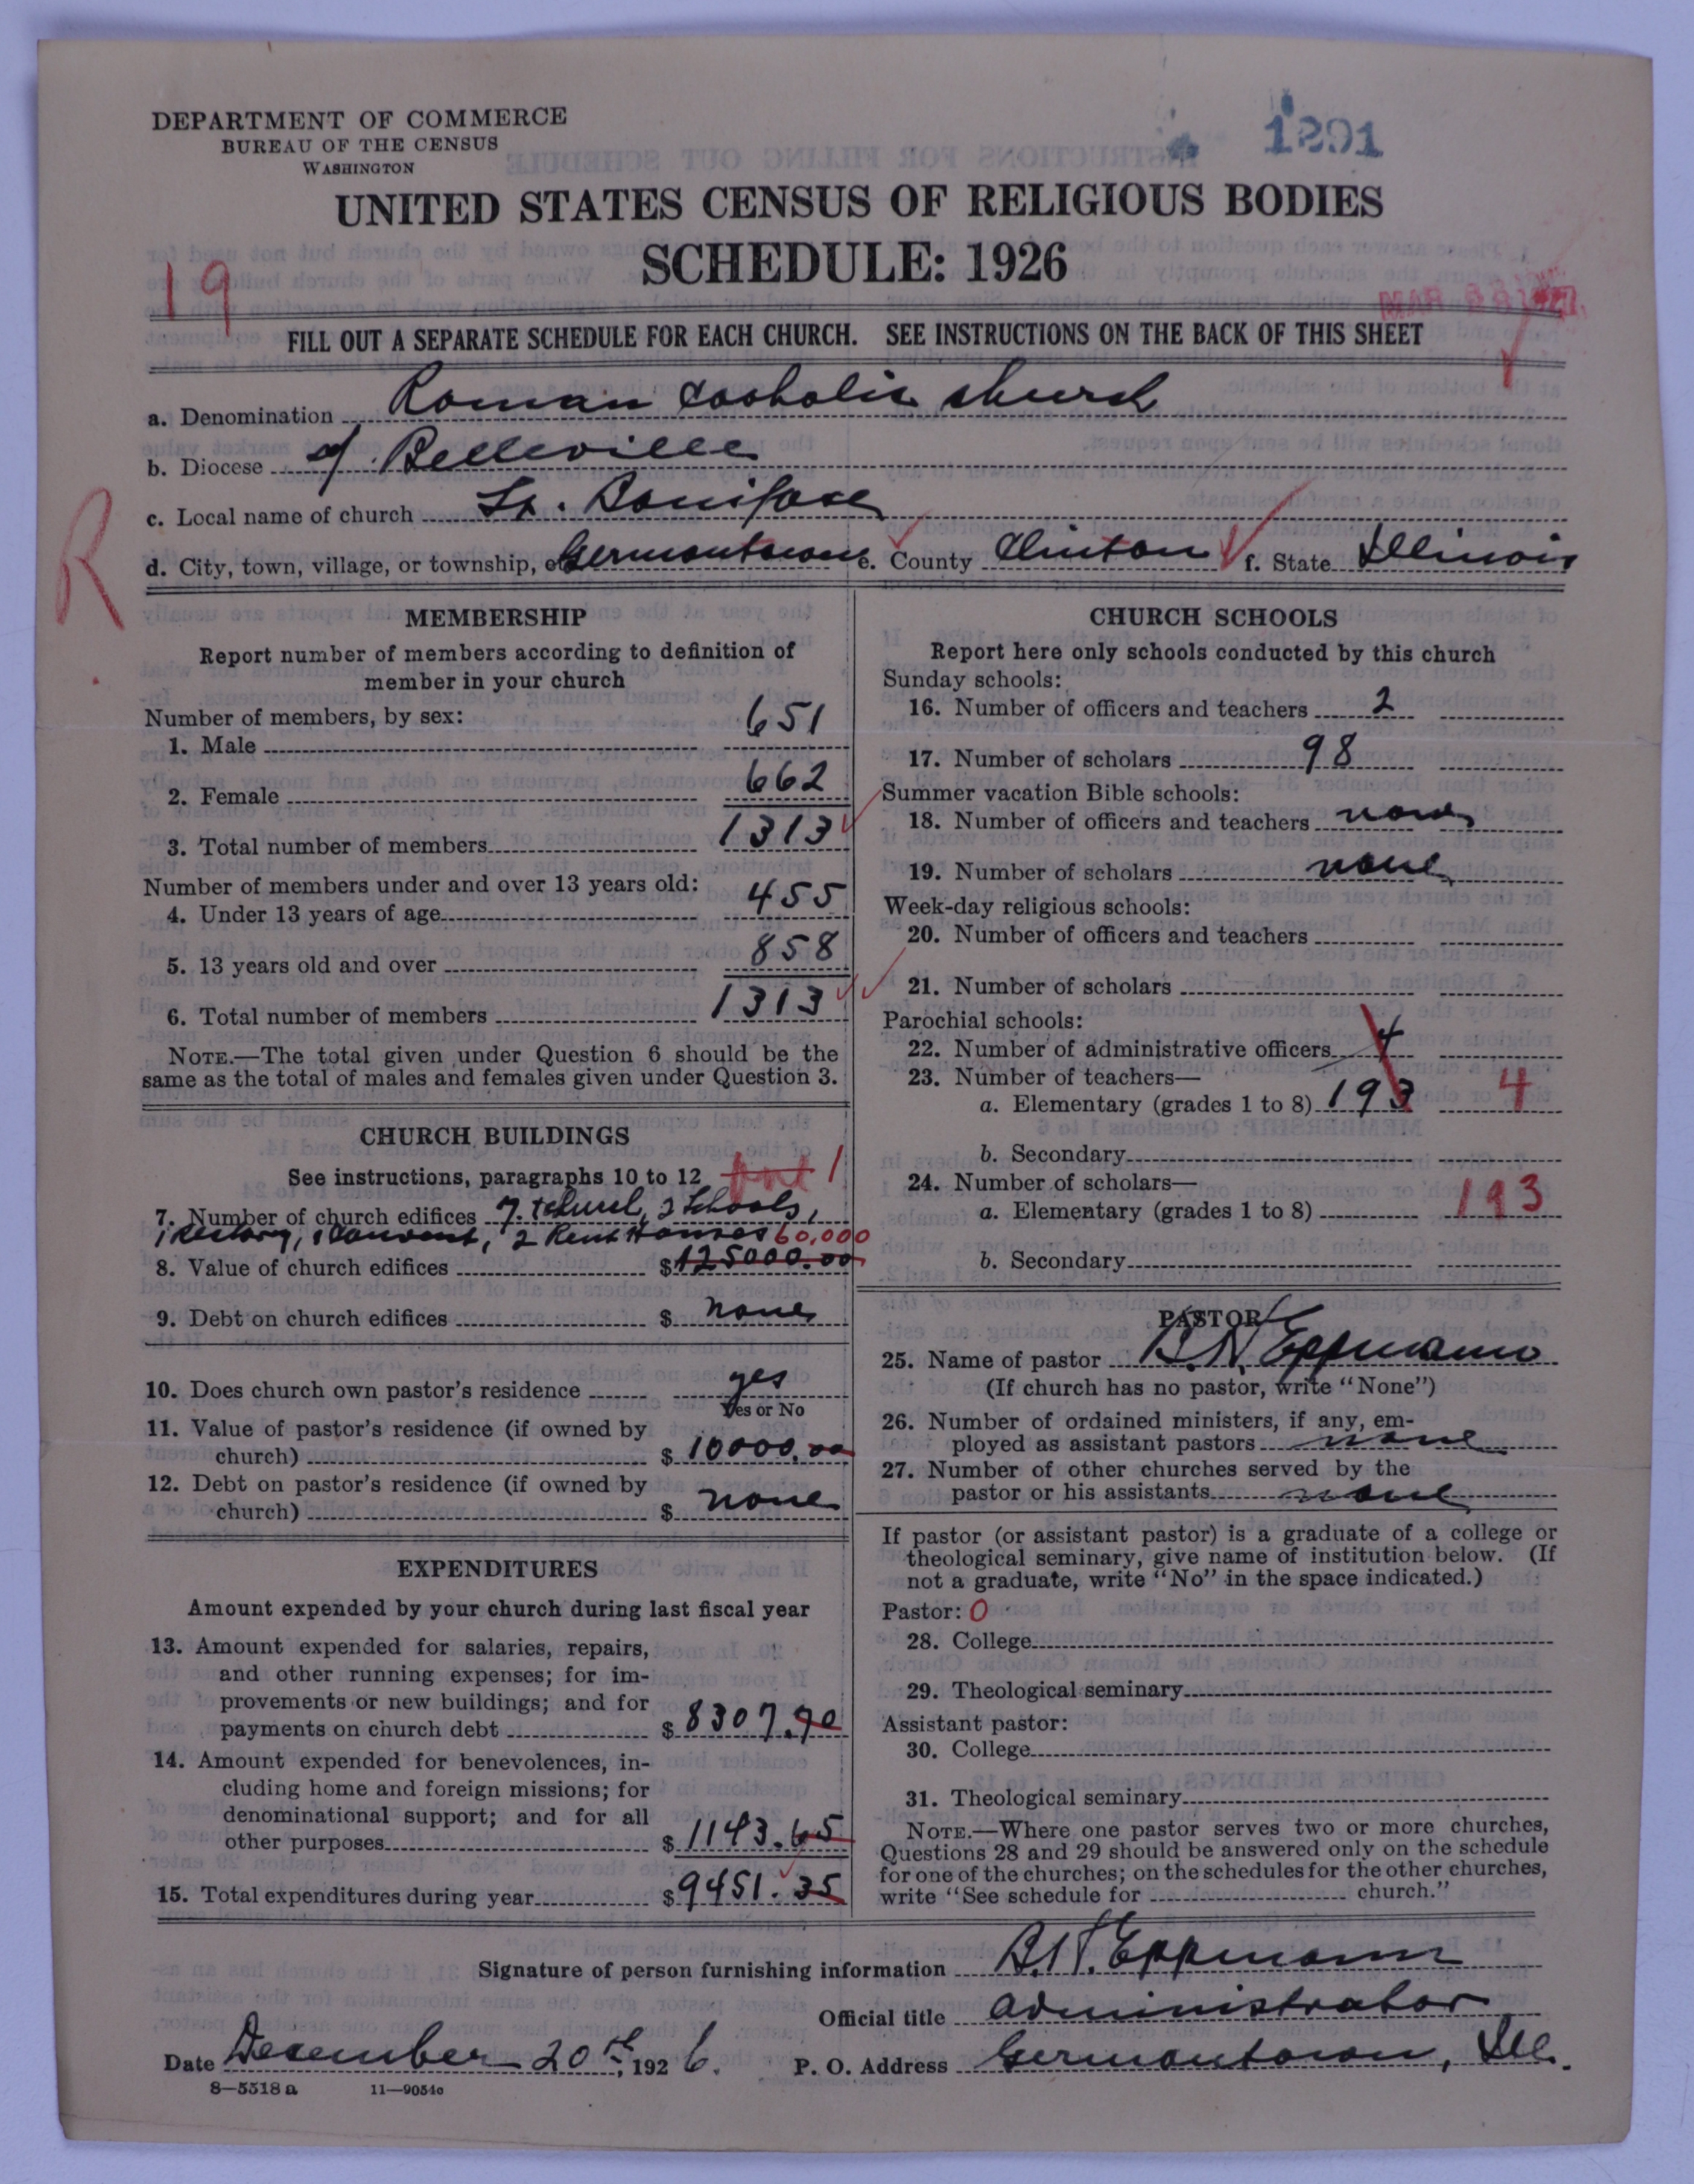 DEPARTMENT OF COMMERCE
BUREAU OF THE CENSUS
WASHINGTON
1291
UNITED STATES CENSUS OF RELIGIOUS BODIES
SCHEDULE: 1926
19
FILL OUT A SEPARATE SCHEDULE FOR EACH CHURCH. SEE INSTRUCTIONS ON THE BACK OF THIS SHEET
a. Denomination Roman Catholic Church
b. Diocese of Belleville
c. Local name of church St. Boniface
R
d. City, town, village, or township, etc. Germantown e. County Clinton f. State Illinois
MEMBERSHIP
Report number of members according to definition of
member in your church
Number of members, by sex:
1. Male 651
2. Female 662
3. Total number of members 1313
Number of members under and over 13 years old:
4. Under 13 years of age 455
5. 13 years old and over 858
6. Total number of members 1313
NOTE.—The total given under Question 6 should be the
same as the total of males and females given under Question 3.
CHURCH BUILDINGS
See instructions, paragraphs 10 to 12 1
7. Number of church edifices 7. 1 Church, 2 Schools,
1 Rectory, 1 Convent, 2 Rent Houses 60,000
8. Value of church edifices $125000.00
9. Debt on church edifices $ none
10. Does church own pastor's residence yes
Yes or No
11. Value of pastor's residence (if owned by
church) $ 10000.00
12. Debt on pastor's residence (if owned by
church) $ none
EXPENDITURES
Amount expended by your church during last fiscal year
13. Amount expended for salaries, repairs,
and other running expenses; for im-
provements or new buildings; and for
payments on church debt $ 8307.70
14. Amount expended for benevolences, in-
cluding home and foreign missions; for
denominational support; and for all
other purposes $ 1143.65
15. Total expenditures during year $ 9451.35
CHURCH SCHOOLS
Report here only schools conducted by this church
Sunday schools:
16. Number of officers and teachers 2
17. Number of scholars 98
Summer vacation Bible schools:
18. Number of officers and teachers none
19. Number of scholars none
Week-day religious schools:
20. Number of officers and teachers
21. Number of scholars
Parochial schools:
22. Number of administrative officers 4
23. Number of teachers—
a. Elementary (grades 1 to 8) 193 4
b. Secondary
24. Number of scholars—
a. Elementary (grades 1 to 8) 193
b. Secondary
PASTOR
25. Name of pastor B. H. Eppmann
(If church has no pastor, write "None")
26. Number of ordained ministers, if any, em-
ployed as assistant pastors none
27. Number of other churches served by the
pastor or his assistants none
If pastor (or assistant pastor) is a graduate of a college or
theological seminary, give name of institution below. (If
not a graduate, write "No" in the space indicated.)
Pastor: 0
28. College
29. Theological seminary
Assistant pastor:
30. College
31. Theological seminary
NOTE.—Where one pastor serves two or more churches,
Questions 28 and 29 should be answered only on the schedule
for one of the churches; on the schedules for the other churches,
write "See schedule for church."
Signature of person furnishing information B. H. Eppmann
Official title Administrator
Date December 20th, 1926. P. O. Address Germantown, Ill.
8—5318 a 11—9054a